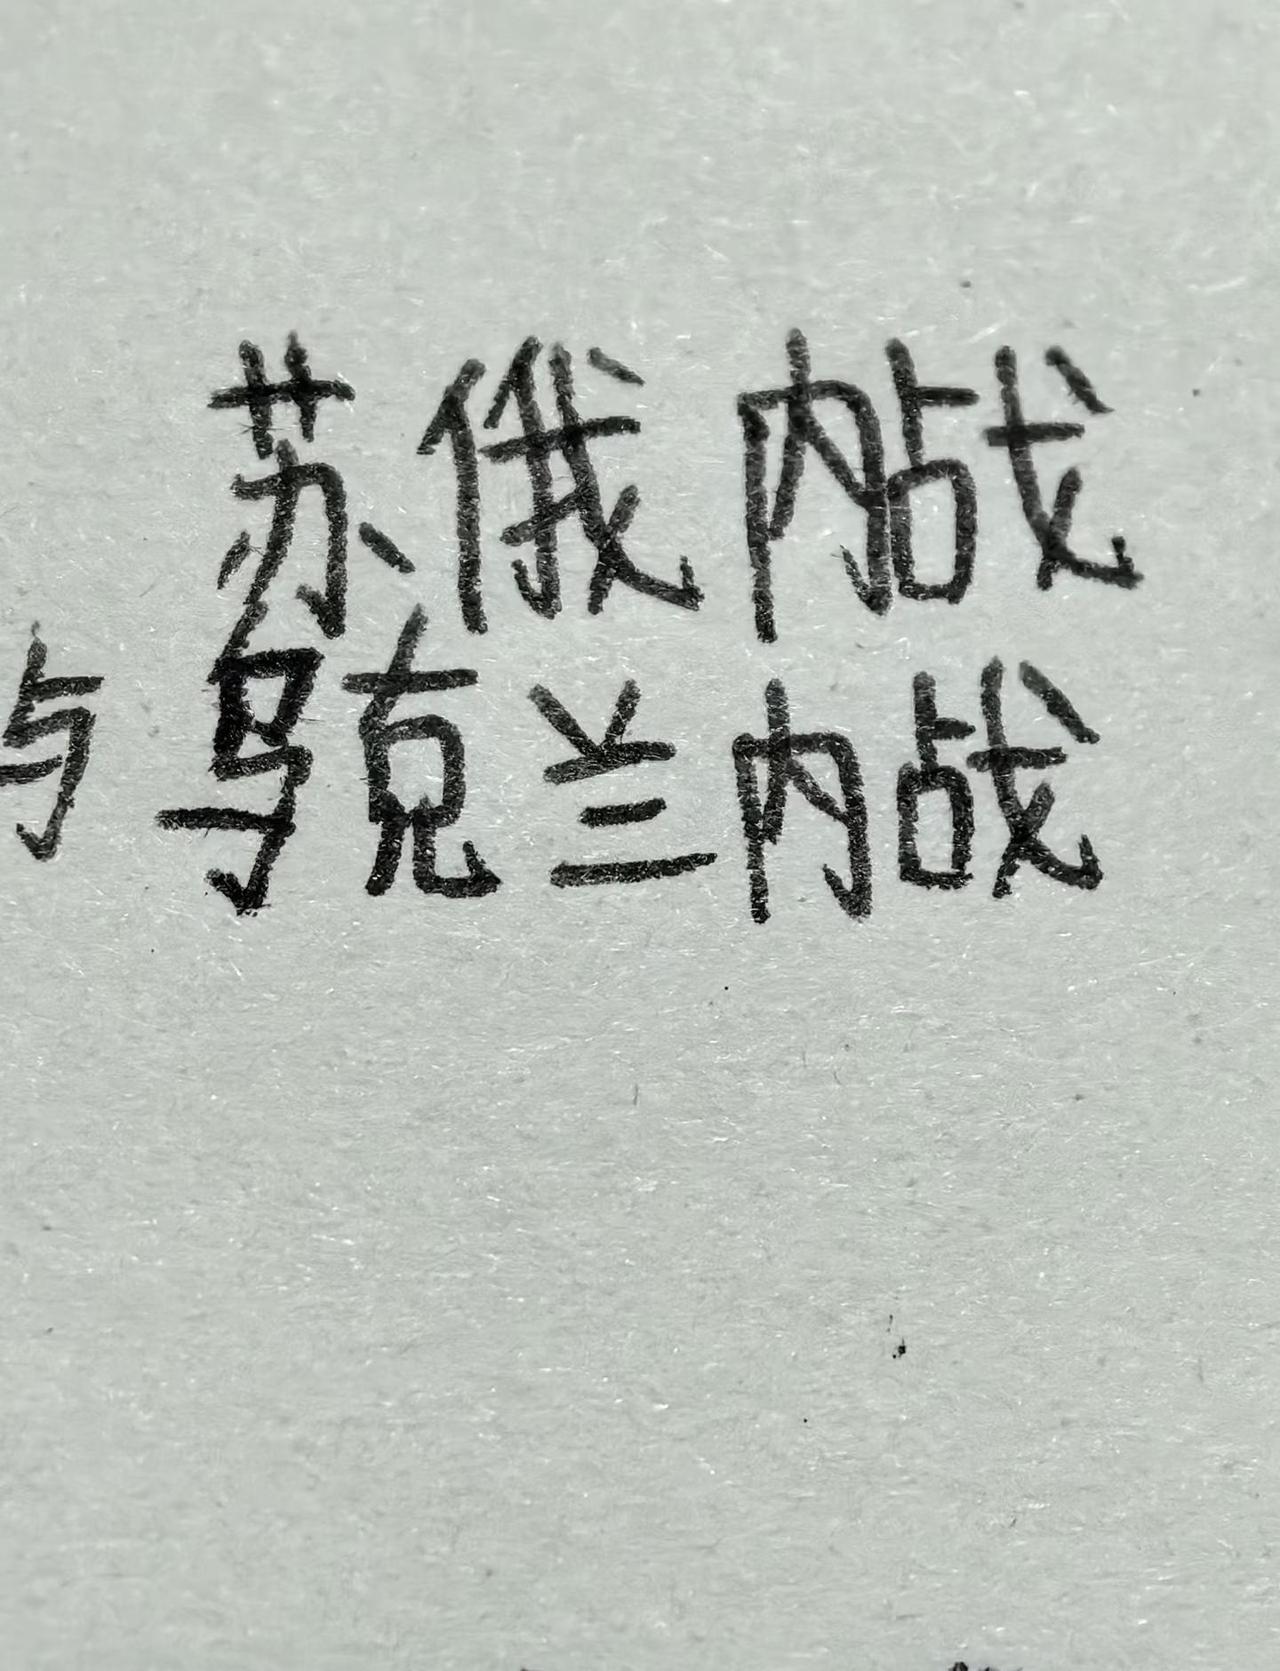 苏俄内战
与乌克兰内战